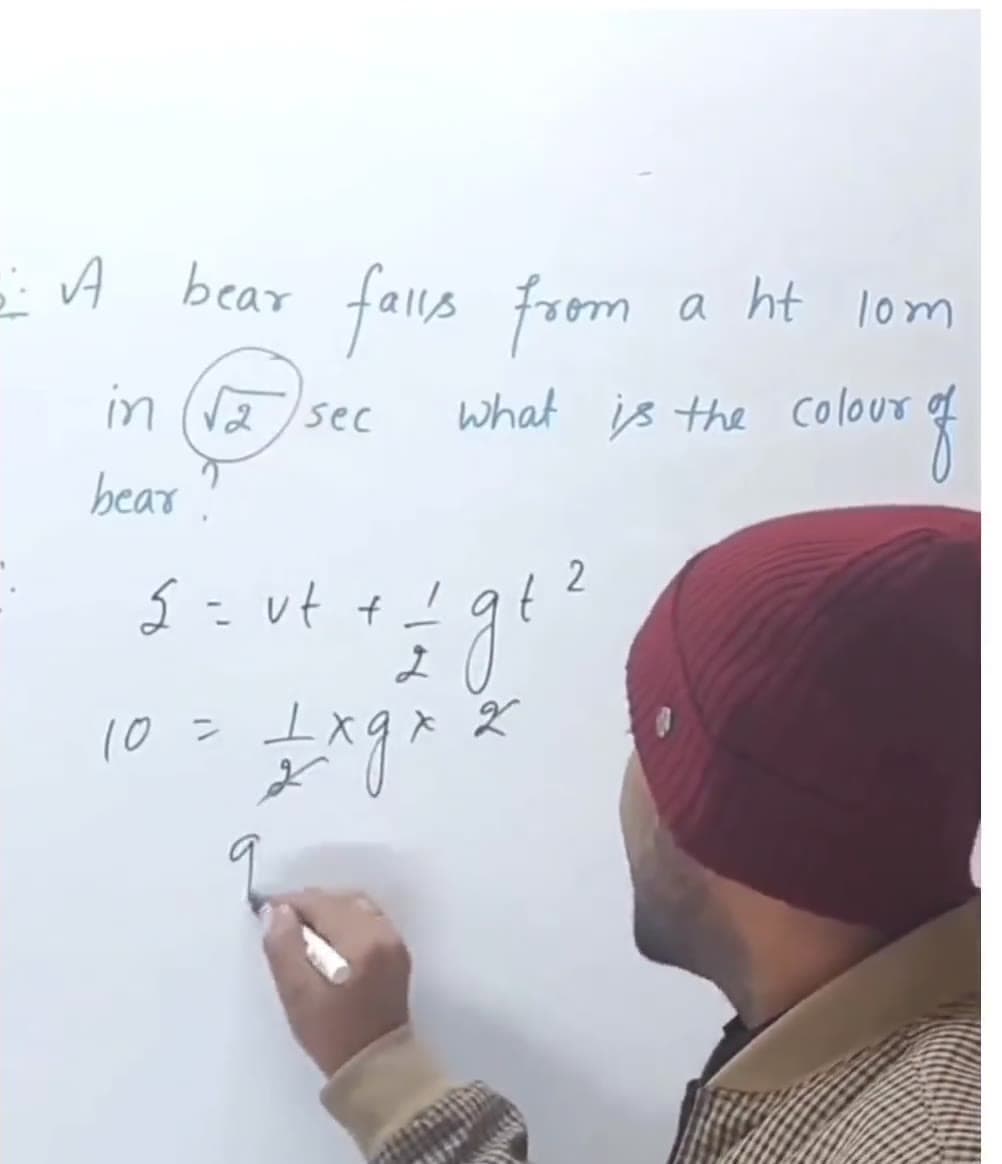 A bear falls from a ht 10m
in √2 sec what is the colour of
bear ?
S = ut + 1/2 gt²
10 = 1/2 x g x 2
g